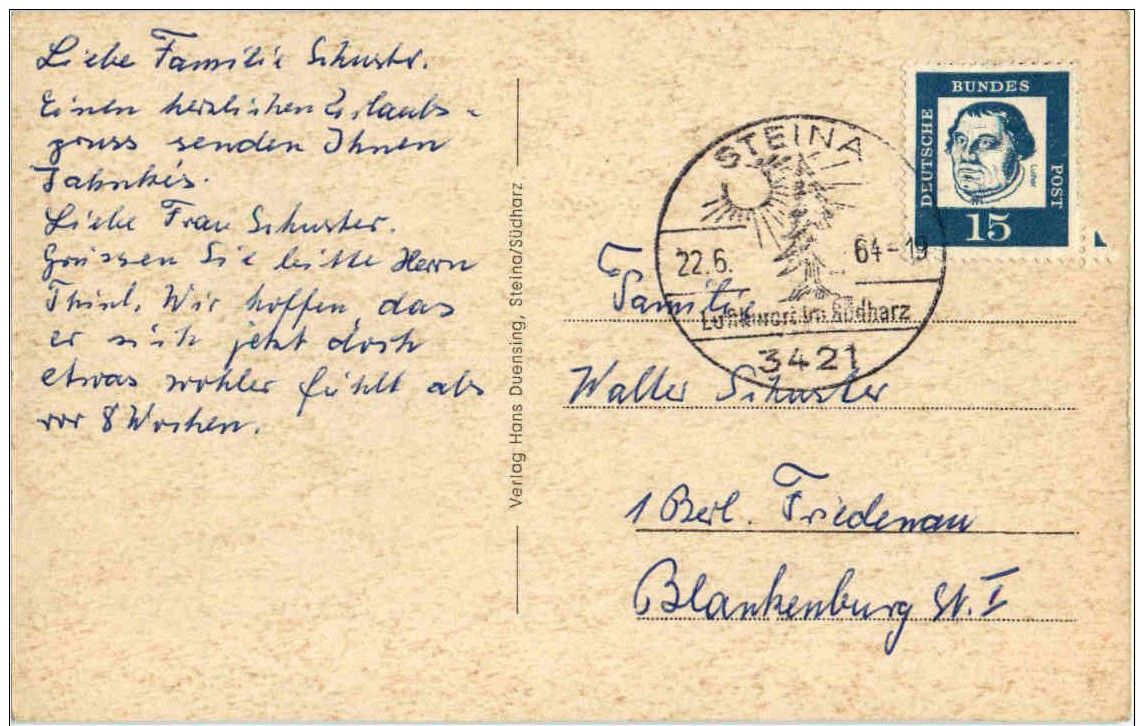 Liebe Familie Schuster.
Einen herzlichen Urlaubs-
gruss senden Ihnen
Jahnkes.
Liebe Frau Schuster.
Grüssen Sie bitte Herrn
Wir hoffen das
er sich jetzt doch
etwas wohler fühlt als
vor 8 Wochen.
Verlag Hans Duensing, Steina/Südharz
DEUTSCHE
BUNDES
POST
Luther
15
STEINA
22.6. 64-19
Luftkurort im Südharz
3421
Familie
Walter Schuster
1 Berl. Friedenau
Blankenburg St. I